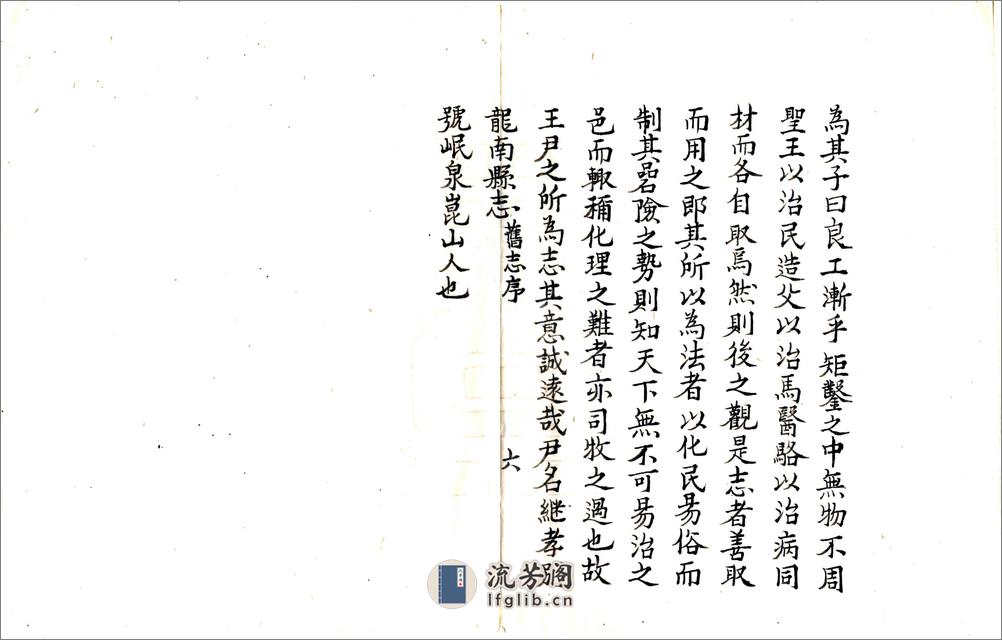 為其子曰良工漸乎矩鑿之中無物不周
聖王以治民造父以治馬醫駱以治病同
材而各自取焉然則後之觀是志者善取
而用之即其所以為法者以化民易俗而
制其嵒險之勢則知天下無不可易治之
邑而輙稱化理之難者亦司牧之過也故
王尹之所為志其意誠遠哉尹名継孝別
龍南縣志 舊志序 六
號岷泉崑山人也
流芳阁
lfglib.cn